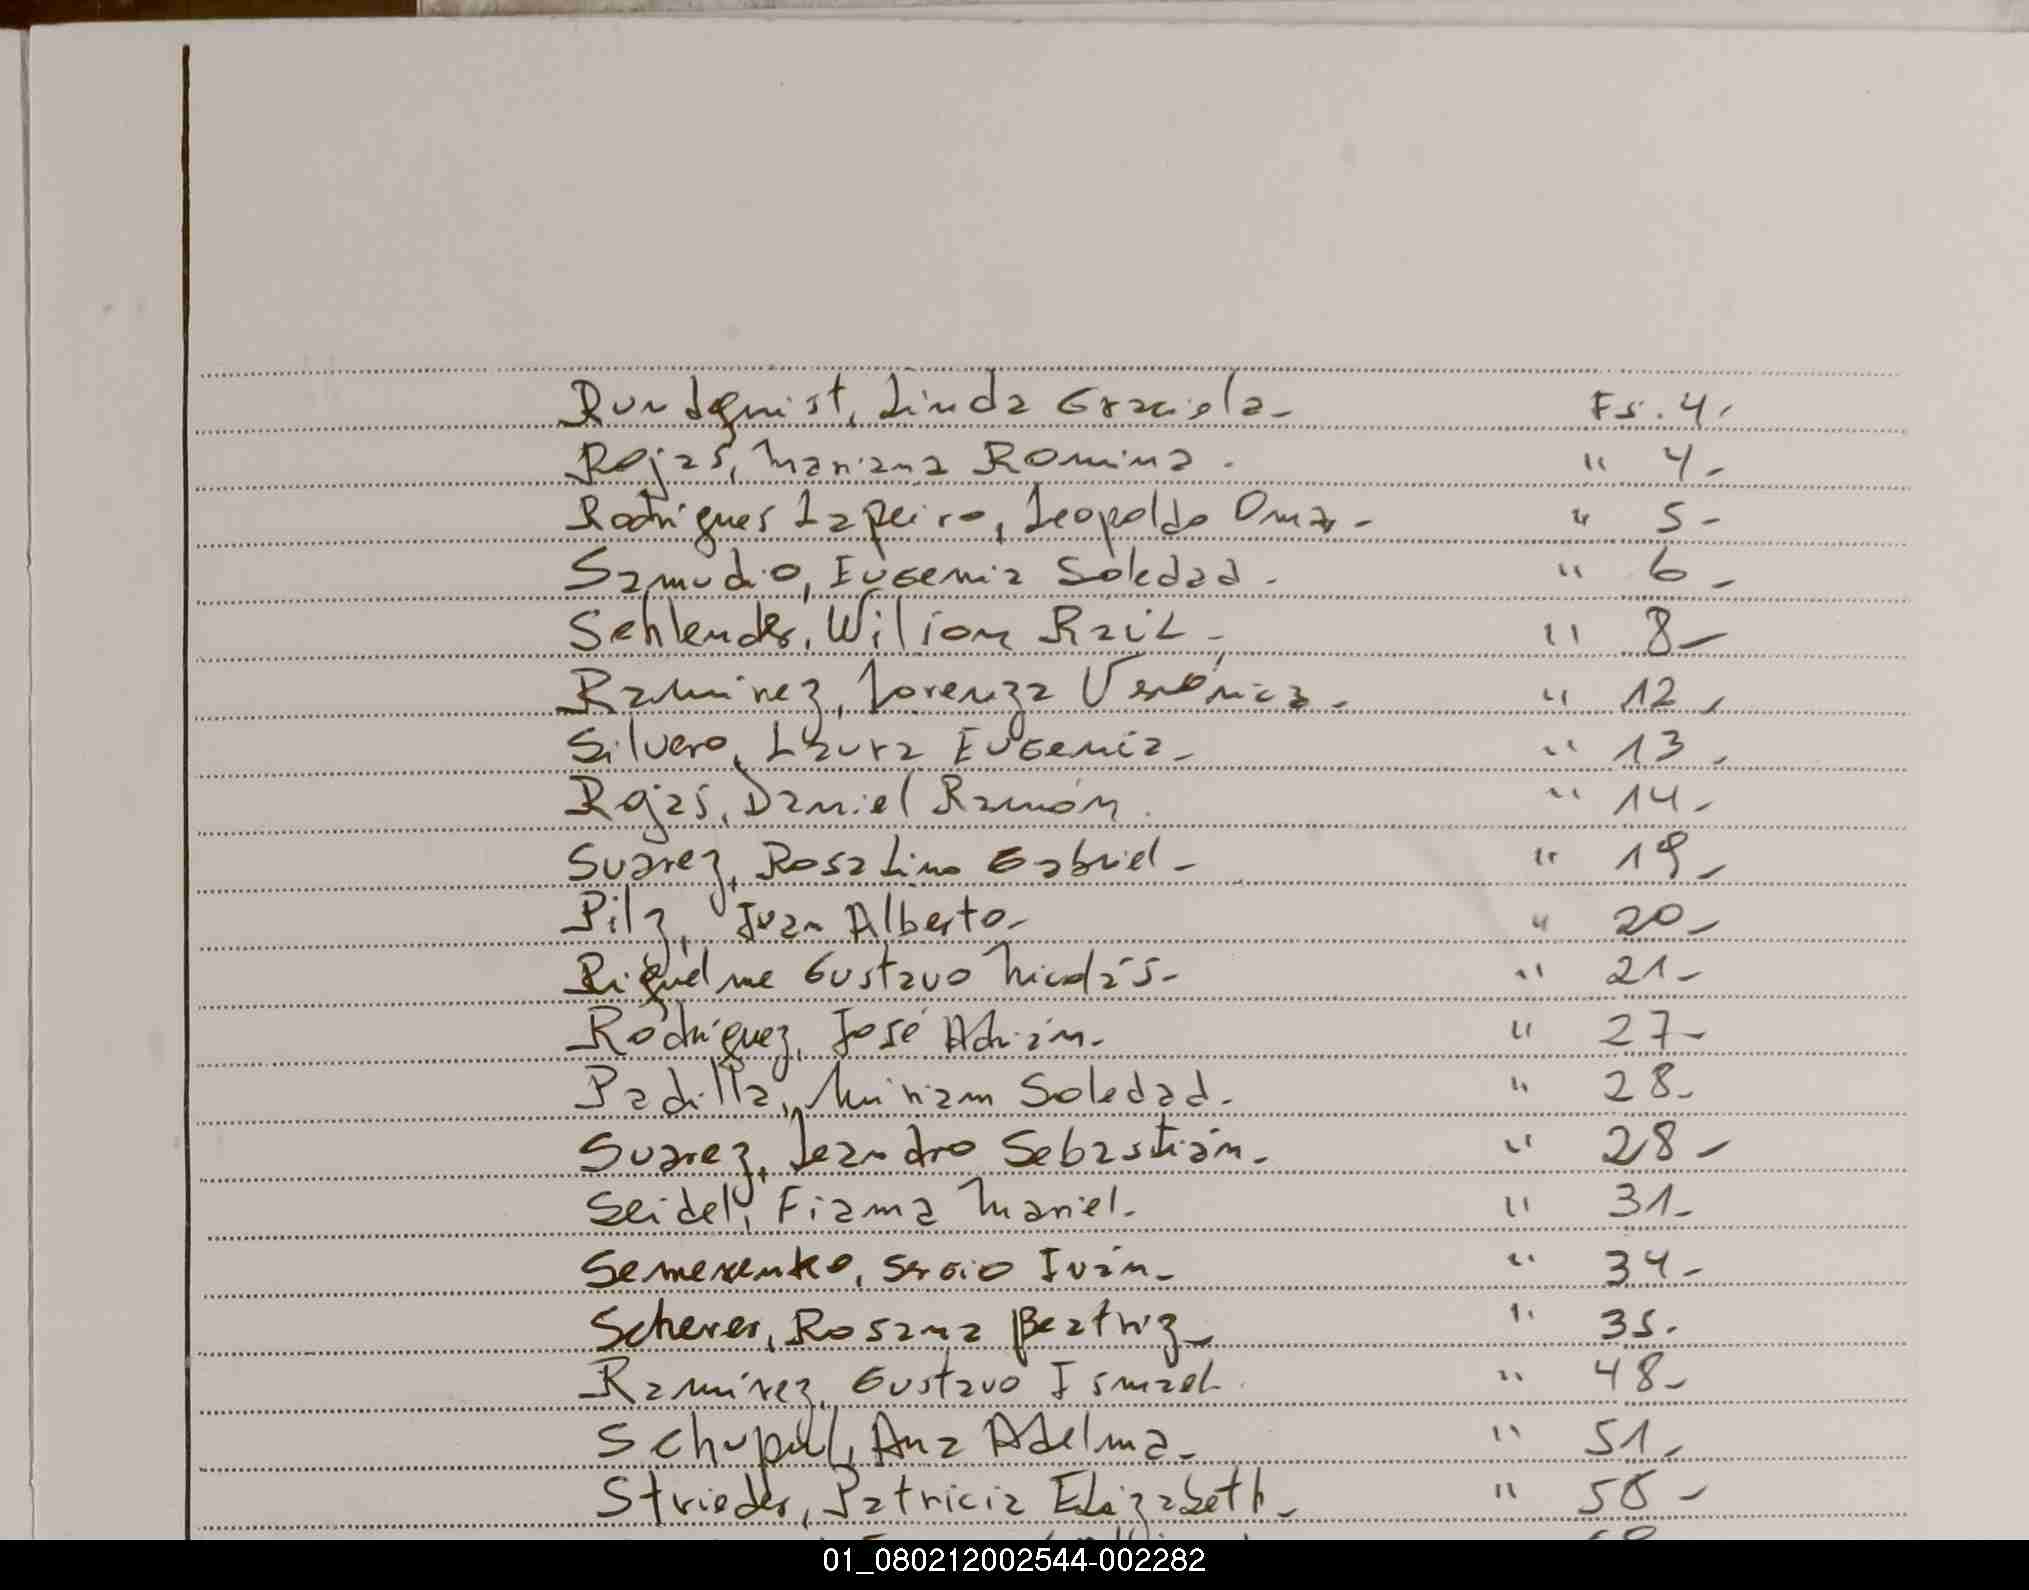 Rundquist, Linda Graciela- Fs. 4.
Rojas, Mariana Romina. " 4-
Rodrigues Lapeiro, Leopoldo Omar- " 5-
Samudio, Eugenia Soledad. " 6-
Sehlender, Wiliom Raúl- " 8-
Ramírez, Lorenza Verónica. " 12,
Silvero, Laura Eugenia- " 13,
Rojas, Daniel Ramón. " 14-
Suarez, Rosalino Gabriel- " 19-
Pilz, Juan Alberto- " 20-
Riquelme Gustavo Nicolás- " 21-
Rodríguez, José Adrián- " 27-
Padilla, Miriam Soledad. " 28-
Suarez, Leandro Sebastián- " 28-
Seidel, Fiama Mariel- " 31-
Semerenko, Sergio Iván- " 34-
Scherer, Rosana Beatriz- " 35.
Ramírez, Gustavo Ismael. " 48-
Ana Adelma- " 51-
Strieder, Patricia Elizabeth- "
01_080212002544-002282